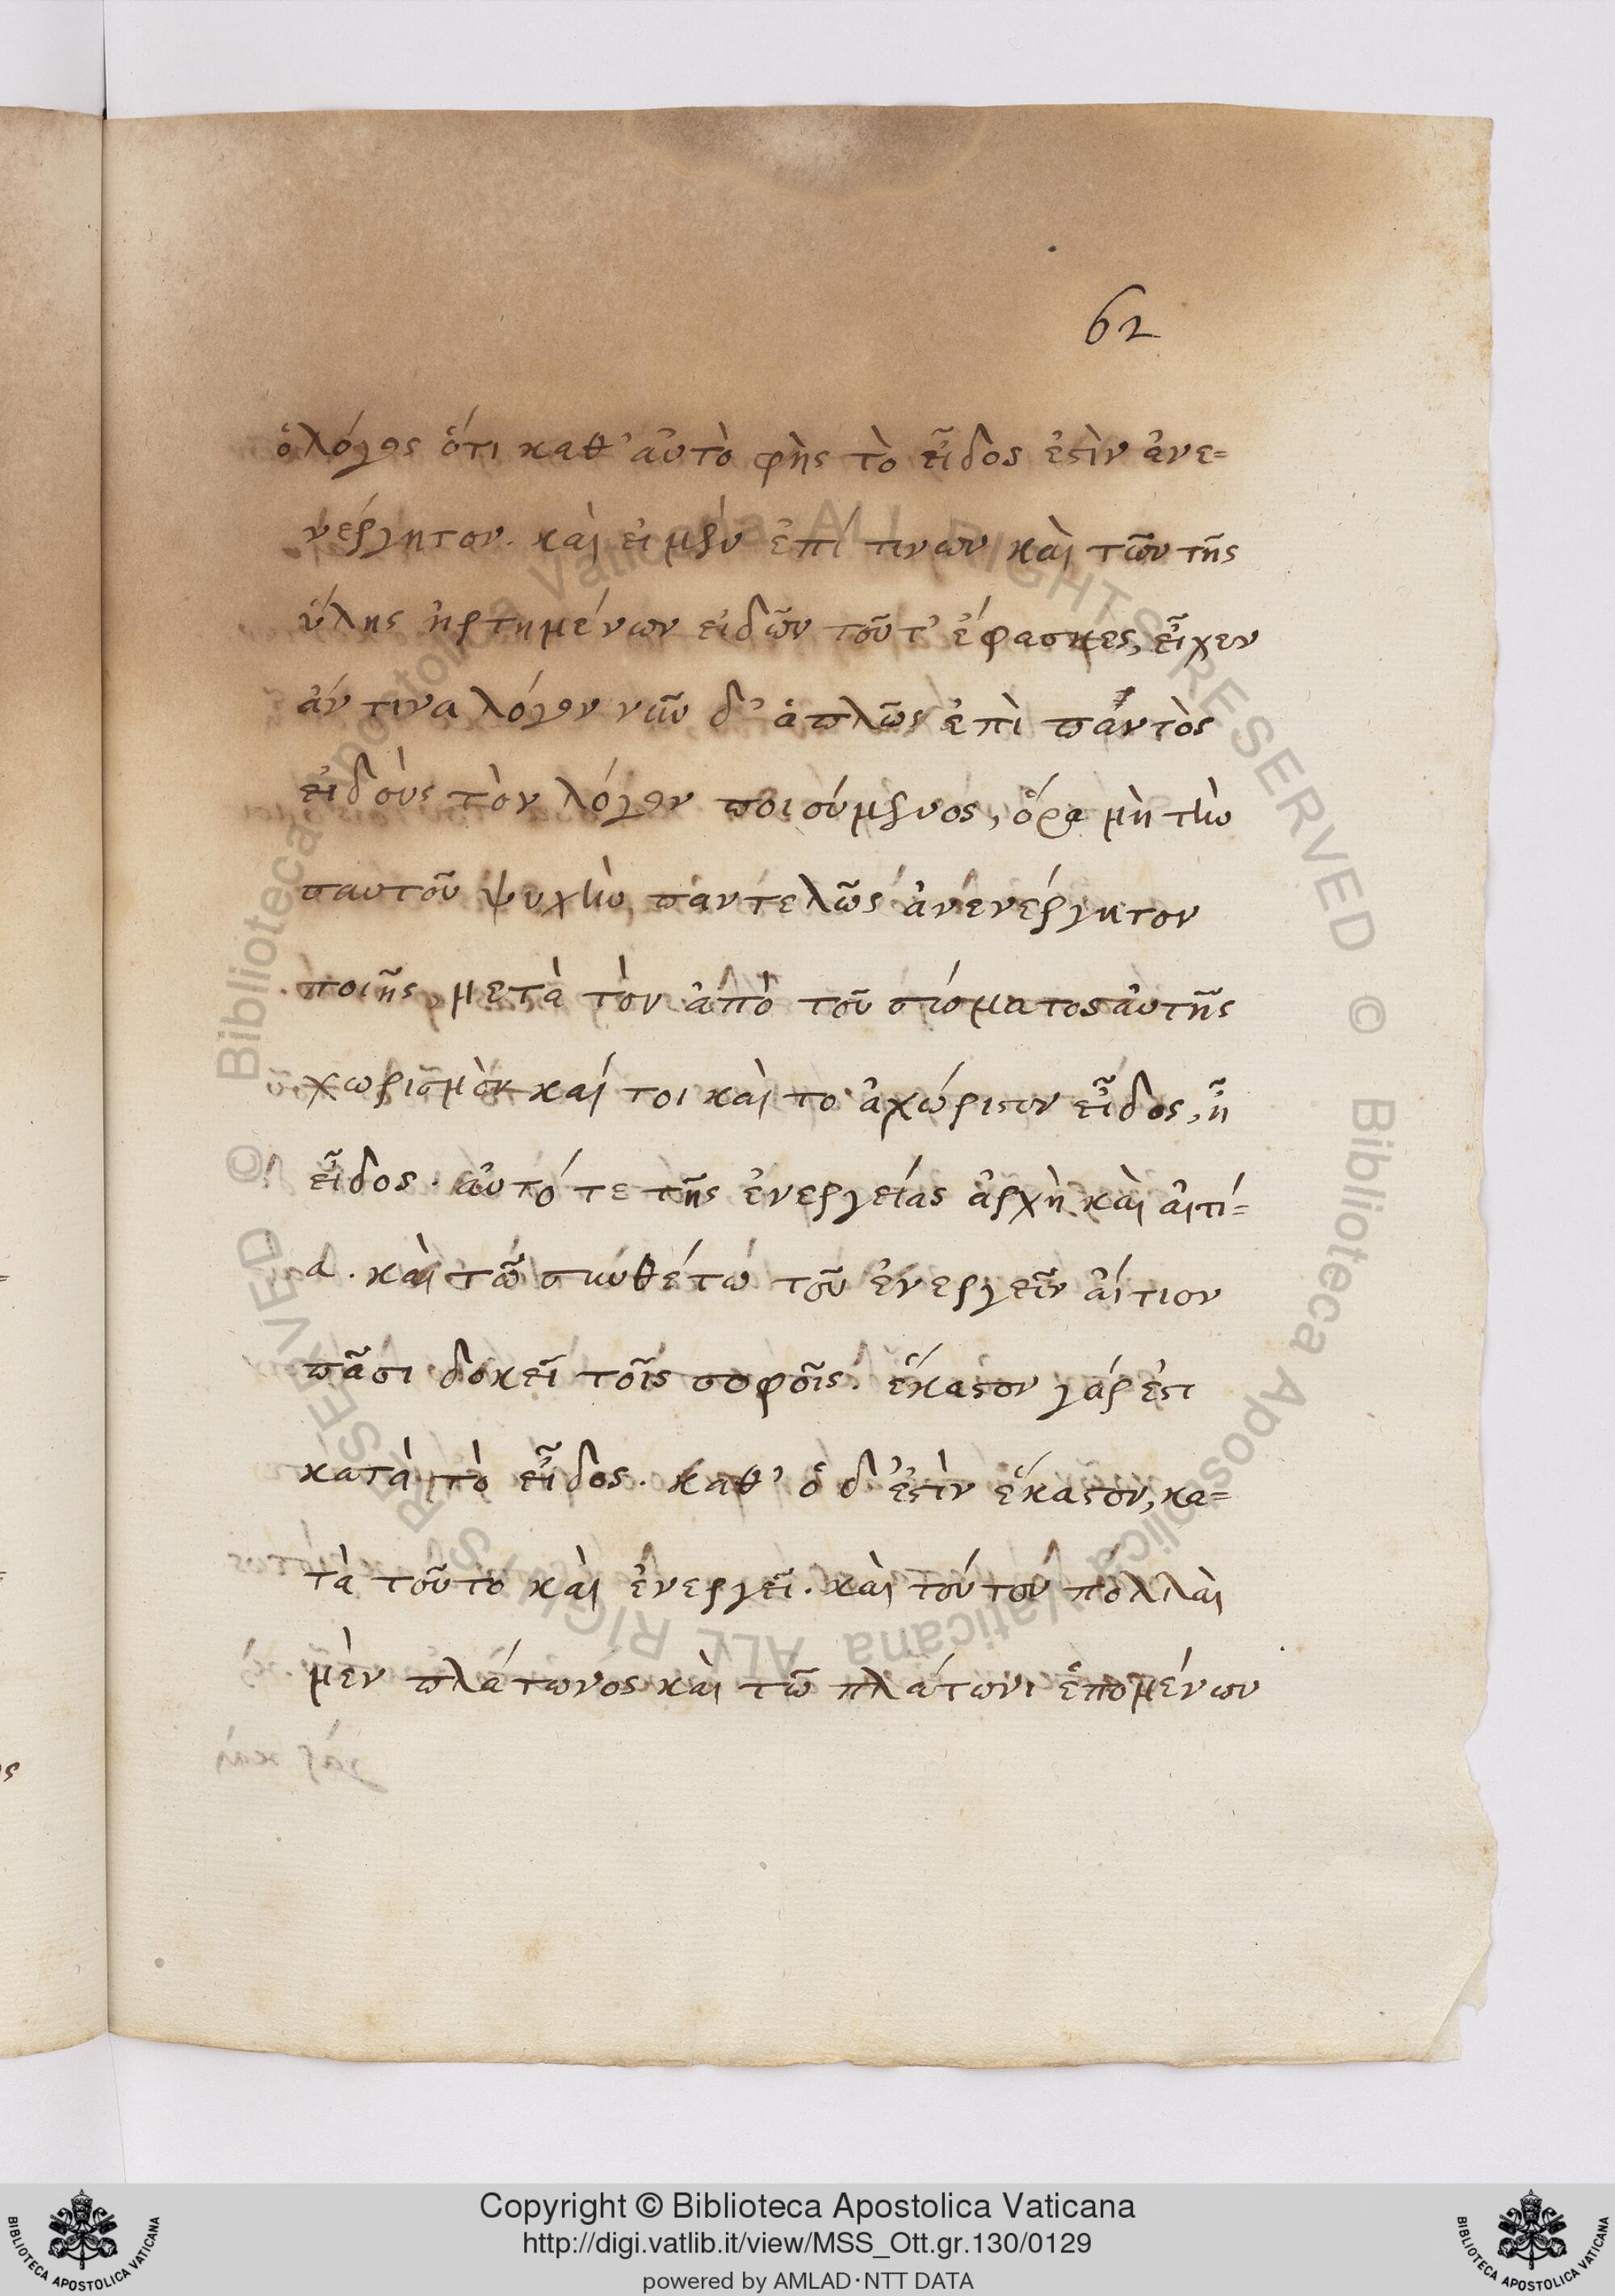 62
ὁ λόγος ὅτι καθ' αὑτὸ φῂς τὸ εἶδος ἐστὶν ἀνε=
νέργητον. καὶ εἰ μὲν ἐπί τινων καὶ τῶν τῆς
ὕλης ἠρτημένων εἰδῶν τοῦτ' ἔφασκες, εἶχεν
ἄν τινα λόγον νῦν δ' ἁπλῶς ἐπὶ παντὸς
εἰδους τὸν λόγον ποιούμενος, ὅρα μὴ τὴν
σαυτοῦ ψυχὴν παντελῶς ἀνενέργητον
ποιῇς μετὰ τὸν ἀπὸ τοῦ σώματος αὐτῆς
χωρισμὸν καί τοι καὶ το ἀχώριστον εἶδος, ᾗ
εἶδος. αὐτό τε τῆς ἐνεργείας ἀρχὴ καὶ αἰτί=
α. καὶ τῶ συνθέτω τοῦ ἐνεργεῖν αἴτιον
πᾶσι δοκεῖ τοῖς σοφοῖς. ἕκαστον γάρ ἐστι
κατὰ τὸ εἶδος. καθ' ὅ δ' ἐστὶν ἕκαστον, κα=
τὰ τοῦτο καὶ ἐνεργεῖ. καὶ τούτου πολλαὶ
μὲν πλάτωνος καὶ τῶ πλάτωνι ἑπομένων
Copyright © Biblioteca Apostolica Vaticana
http://digi.vatlib.it/view/MSS_Ott.gr.130/0129
powered by AMLAD·NTT DATA
BIBLIOTECA APOSTOLICA VATICANA
BIBLIOTECA APOSTOLICA VATICANA
© Biblioteca Apostolica Vaticana ALL RIGHTS RESERVED
© Biblioteca Apostolica Vaticana ALL RIGHTS RESERVED